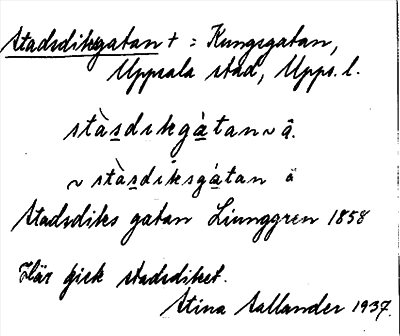 Stadsdiksgatan + = Kungsgatan,
Uppsala stad, Upps. l.
stàsdıkgàtan ~ â.
~ stàsdíksgátan â
Stadsdiks gatan Ljunggren 1858
Här gick stadsdiket.
Stina Sallander 1937.